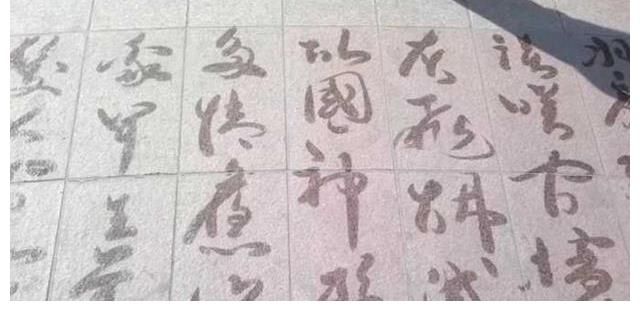 羽扇
談笑間檣
灰飛煙滅
故國神遊
多情應笑
我早生華
髮